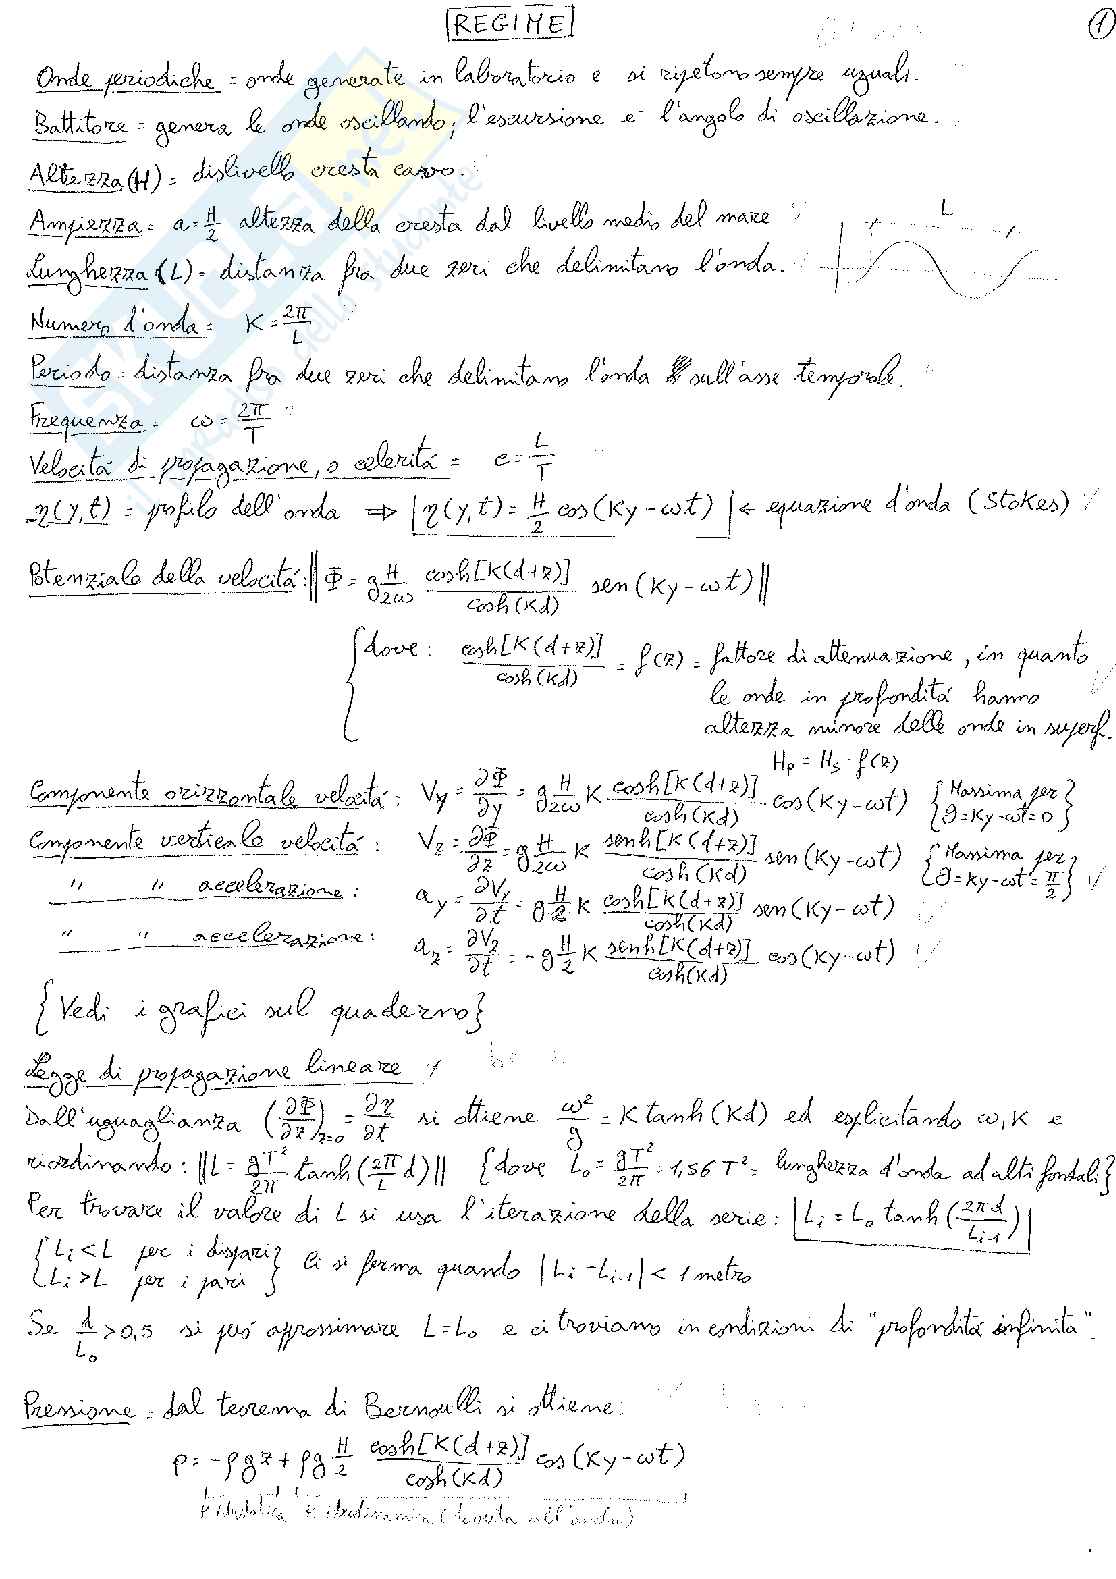 REGIME
1
Onde periodiche = onde generate in laboratorio e si ripetono sempre uguali.
Battitore = genera le onde oscillando; l'escursione è l'angolo di oscillazione.
Altezza (H) = dislivello cresta cavo.
Ampiezza = a = H/2 altezza della cresta dal livello medio del mare
L
Lunghezza (L) = distanza fra due zeri che delimitano l'onda.
Numero d'onda = K = 2π/L
Periodo = distanza fra due zeri che delimitano l'onda sull'asse temporale.
Frequenza = ω = 2π/T
Velocitá di propagazione, o celeritá = c = L/T
η(y,t) = profilo dell'onda ⇒ |η(y,t) = H/2 cos(Ky-ωt)| ← equazione d'onda (Stokes)
Potenziale della velocitá: ||Φ = g H/2ω cosh[K(d+z)]/cosh(Kd) sen(Ky-ωt)||
{dove: cosh[K(d+z)]/cosh(Kd) = f(z) = fattore di attenuazione, in quanto
le onde in profonditá hanno
altezza minore delle onde in superf.
Hp = Hs · f(z)
Componente orizzontale velocitá: Vy = ∂Φ/∂y = g H/2ω K cosh[K(d+z)]/cosh(Kd) cos(Ky-ωt) {Massima per ∂=Ky-ωt=0}
Componente verticale velocitá: Vz = ∂Φ/∂z = g H/2ω K senh[K(d+z)]/cosh(Kd) sen(Ky-ωt) {Massima per ∂=Ky-ωt=π/2}
" " accelerazione: ay = ∂Vy/∂t = g H/2 K cosh[K(d+z)]/cosh(Kd) sen(Ky-ωt)
" " accelerazione: az = ∂Vz/∂t = -g H/2 K senh[K(d+z)]/cosh(Kd) cos(Ky-ωt)
{Vedi i grafici sul quaderno}
Legge di propagazione lineare
Dall'uguaglianza (∂Φ/∂z)z=0 = ∂η/∂t si ottiene ω²/g = K tanh(Kd) ed esplicitando ω, K e
riordinando: ||L = gT²/2π tanh(2π/L d)|| {dove L₀ = gT²/2π = 1,56 T² = lunghezza d'onda ad alti fondali}
Per trovare il valore di L si usa l'iterazione della serie: |Li = L₀ tanh(2πd/Li-1)|
{Li < L per i dispari
Li > L per i pari} Ci si ferma quando |Li - Li-1| < 1 metro
Se d/L₀ > 0,5 si puó approssimare L = L₀ e ci troviamo in condizioni di "profonditá infinita".
Pressione = dal teorema di Bernoulli si ottiene:
p = -ρgz + ρg H/2 cosh[K(d+z)]/cosh(Kd) cos(Ky-ωt)